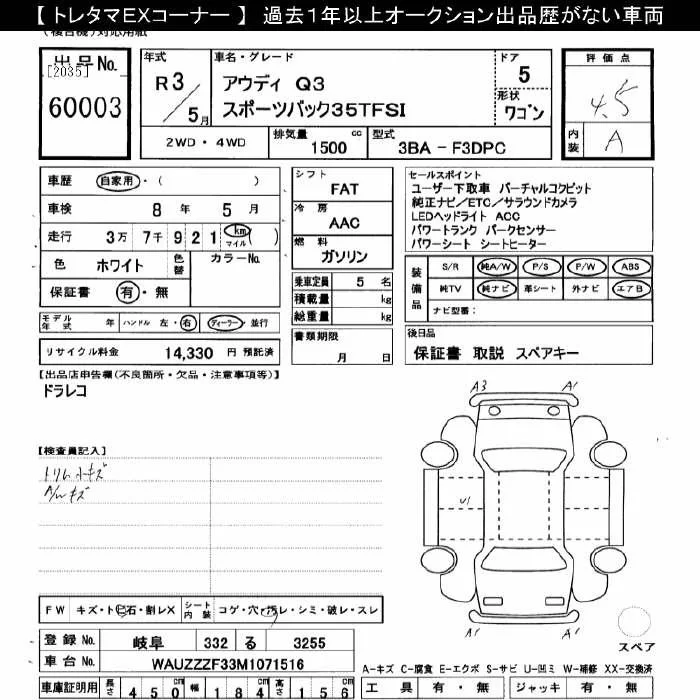 【 トレタマEXコーナー 】 過去1年以上オークション出品歴がない車両
出品No.
[2035]
60003
年式
R 3 / 5 月
車名・グレード
アウディ Q3
スポーツバック35TFSI
ドア
5
形状
ワゴン
2WD・4WD
排気量
1500 cc
型式
3BA - F3DPC
評価点
4.5
内装
A
車歴 自家用・( )
車検 8 年 5 月
走行 3万 7千 9 2 1 km マイル ( )
色 ホワイト 色替 カラーNo.
保証書 有・無
シフト
FAT
冷房
AAC
燃料
ガソリン
乗車定員 5 名
積載量 kg
総重量 kg
セールスポイント
ユーザー下取車 バーチャルコクピット
純正ナビ/ETC/サラウンドカメラ
LEDヘッドライト ACC
パワートランク パークセンサー
パワーシート シートヒーター
装備品
S/R 純A/W P/S P/W ABS
純TV 純ナビ 革シート 外ナビ エアB
ナビ型番:
モデル年式 年 ハンドル 左・右 ディーラー・並行
リサイクル料金 14,330 円 預託済
書類期限
月 日
後日品
保証書 取説 スペアキー
【出品店申告欄(不良箇所・欠品・注意事項等)】
ドラレコ
【検査員記入】
トリム小キズ
A/Wキズ
A3 A1
U1
A1 A1
スペア
FW キズ・トビ石・割レX シート内装 コゲ・穴・汚レ・シミ・破レ・スレ
登録No. 岐阜 332 る 3255
車台No. WAUZZZF33M1071516
車庫証明用 長さ 450 cm 幅 184 cm 高さ 156 cm
A-キズ C-腐食 E-エクボ S-サビ U-凹ミ W-補修 XX-交換済
工具 有・無 ジャッキ 有・無